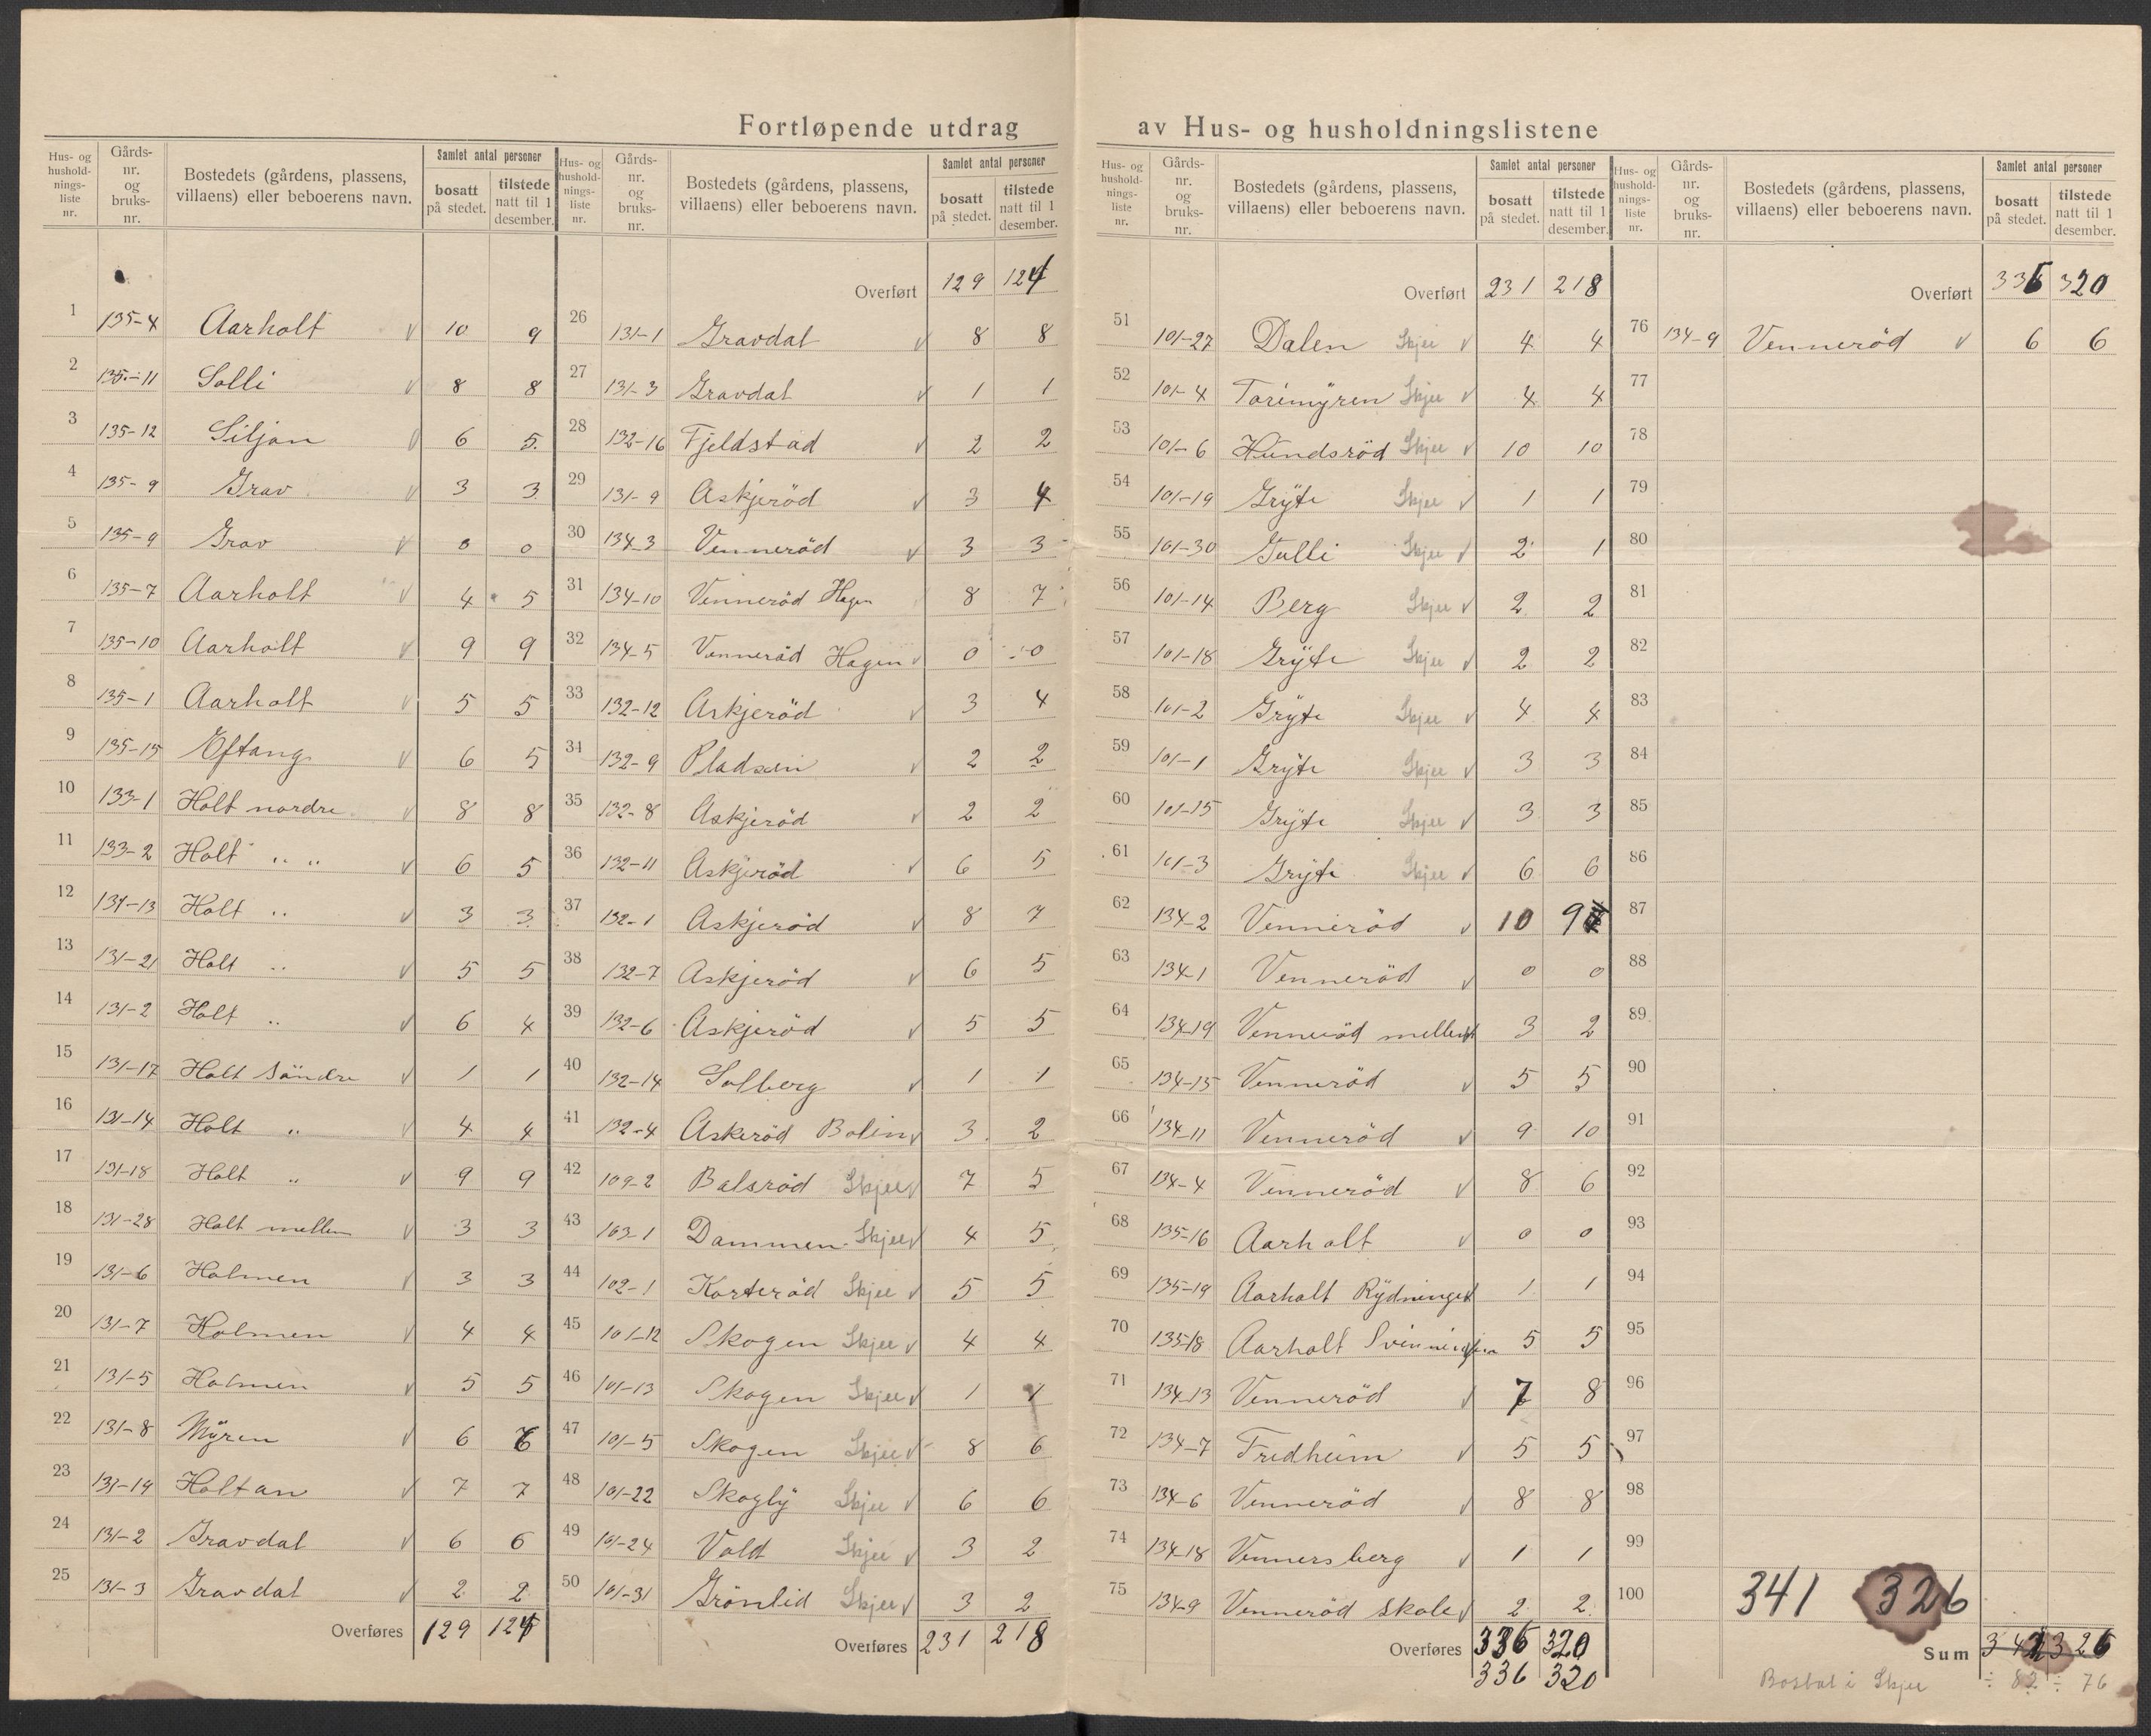 Fortløpende utdrag av Hus- og husholdningslistene
Hus- og hushold- nings- liste nr. | Gårds- nr. og bruks- nr. | Bostedets (gårdens, plassens, villaens) eller beboerens navn. | Samlet antal personer | bosatt på stedet. | tilstede natt til 1 desember.
1 135-4 Aarholt v 10 9
2 135-11 Solli v 8 8
3 135-12 Siljan v 6 5
4 135-9 Grav v 3 3
5 135-9 Grav v 0 0
6 135-7 Aarholt v 4 5
7 135-10 Aarholt v 9 9
8 135-1 Aarholt v 5 5
9 135-15 Eftang v 6 5
10 133-1 Holt nordre v 8 8
11 133-2 Holt " " v 6 5
12 131-13 Holt " v 3 3
13 131-21 Holt " v 5 5
14 131-2 Holt " v 6 4
15 131-17 Holt Söndre v 1 1
16 131-14 Holt " v 4 4
17 131-18 Holt " v 9 9
18 131-28 Holt mellem v 3 3
19 131-6 Holmen v 3 3
20 131-7 Holmen v 4 4
21 131-5 Holmen v 5 5
22 131-8 Myren v 6 6
23 131-19 Holtan v 7 7
24 131-2 Gravdal v 6 6
25 131-3 Gravdal v 2 2
Overføres 129 124
Hus- og hushold- nings- liste nr. | Gårds- nr. og bruks- nr. | Bostedets (gårdens, plassens, villaens) eller beboerens navn. | Samlet antal personer | bosatt på stedet. | tilstede natt til 1 desember.
Overført 129 124
26 131-1 Gravdal v 8 8
27 131-3 Gravdal v 1 1
28 132-16 Fjeldstad v 2 2
29 131-9 Askjeröd v 3 4
30 134-3 Venneröd v 3 3
31 134-10 Venneröd Hagen 8 7
32 134-5 Venneröd Hagen v 0 0
33 132-12 Askjeröd v 3 4
34 132-9 Pladsen v 2 2
35 132-8 Askjeröd v 2 2
36 132-11 Askjeröd v 6 5
37 132-1 Askjeröd v 8 7
38 132-7 Askjeröd v 6 5
39 132-6 Askjeröd v 5 5
40 132-14 Solberg v 1 1
41 132-4 Askeröd Bolin v 3 2
42 109-2 Balsröd Skjee v 7 5
43 103-1 Dammen Skjee v 4 5
44 102-1 Korteröd Skjee v 5 5
45 101-12 Skogen Skjee v 4 4
46 101-13 Skogen Skjee v 1 1
47 101-5 Skogen Skjee v 8 6
48 101-22 Skogly Skjee v 6 6
49 101-24 Vold Skjee v 3 2
50 101-31 Grönlid Skjee v 3 2
Overføres 231 218
Hus- og hushold- nings- liste nr. | Gårds- nr. og bruks- nr. | Bostedets (gårdens, plassens, villaens) eller beboerens navn. | Samlet antal personer | bosatt på stedet. | tilstede natt til 1 desember.
Overført 231 218
51 101-27 Dalen Skjee v 4 4
52 101-4 Torimyren Skjee v 4 4
53 101-6 Hundsröd Skjee v 10 10
54 101-19 Gryte Skjee v 1 1
55 101-30 Skjee v 2 1
56 101-14 Berg Skjee v 2 2
57 101-18 Gryte Skjee v 2 2
58 101-2 Gryte Skjee v 4 4
59 101-1 Gryte Skjee v 3 3
60 101-15 Gryte Skjee v 3 3
61 101-3 Gryte Skjee v 6 6
62 134-2 Venneröd v 10 9
63 134-1 Venneröd v 0 0
64 134-19 Venneröd mellem 3 2
65 134-15 Venneröd v 5 5
66 134-11 Venneröd v 9 10
67 134-4 Venneröd v 8 6
68 135-16 Aarholt v 0 0
69 135-19 Aarholt Rydninget 1 1
70 135-18 Aarholt 5 5
71 134-13 Venneröd v 7 8
72 134-7 Fredheim v 5 5
73 134-6 Venneröd v 8 8
74 134-18 Vennersberg v 1 1
75 134-9 Venneröd skole v 2 2
Overføres 336 320
336 320
Hus- og hushold- nings- liste nr. | Gårds- nr. og bruks- nr. | Bostedets (gårdens, plassens, villaens) eller beboerens navn. | Samlet antal personer | bosatt på stedet. | tilstede natt til 1 desember.
Overført 336 320
76 134-9 Venneröd v 6 6
77
78
79
80
81
82
83
84
85
86
87
88
89
90
91
92
93
94
95
96
97
98
99
100 341 326
Sum 342 326
Bosbat i Skjee ÷ 82 ÷ 76